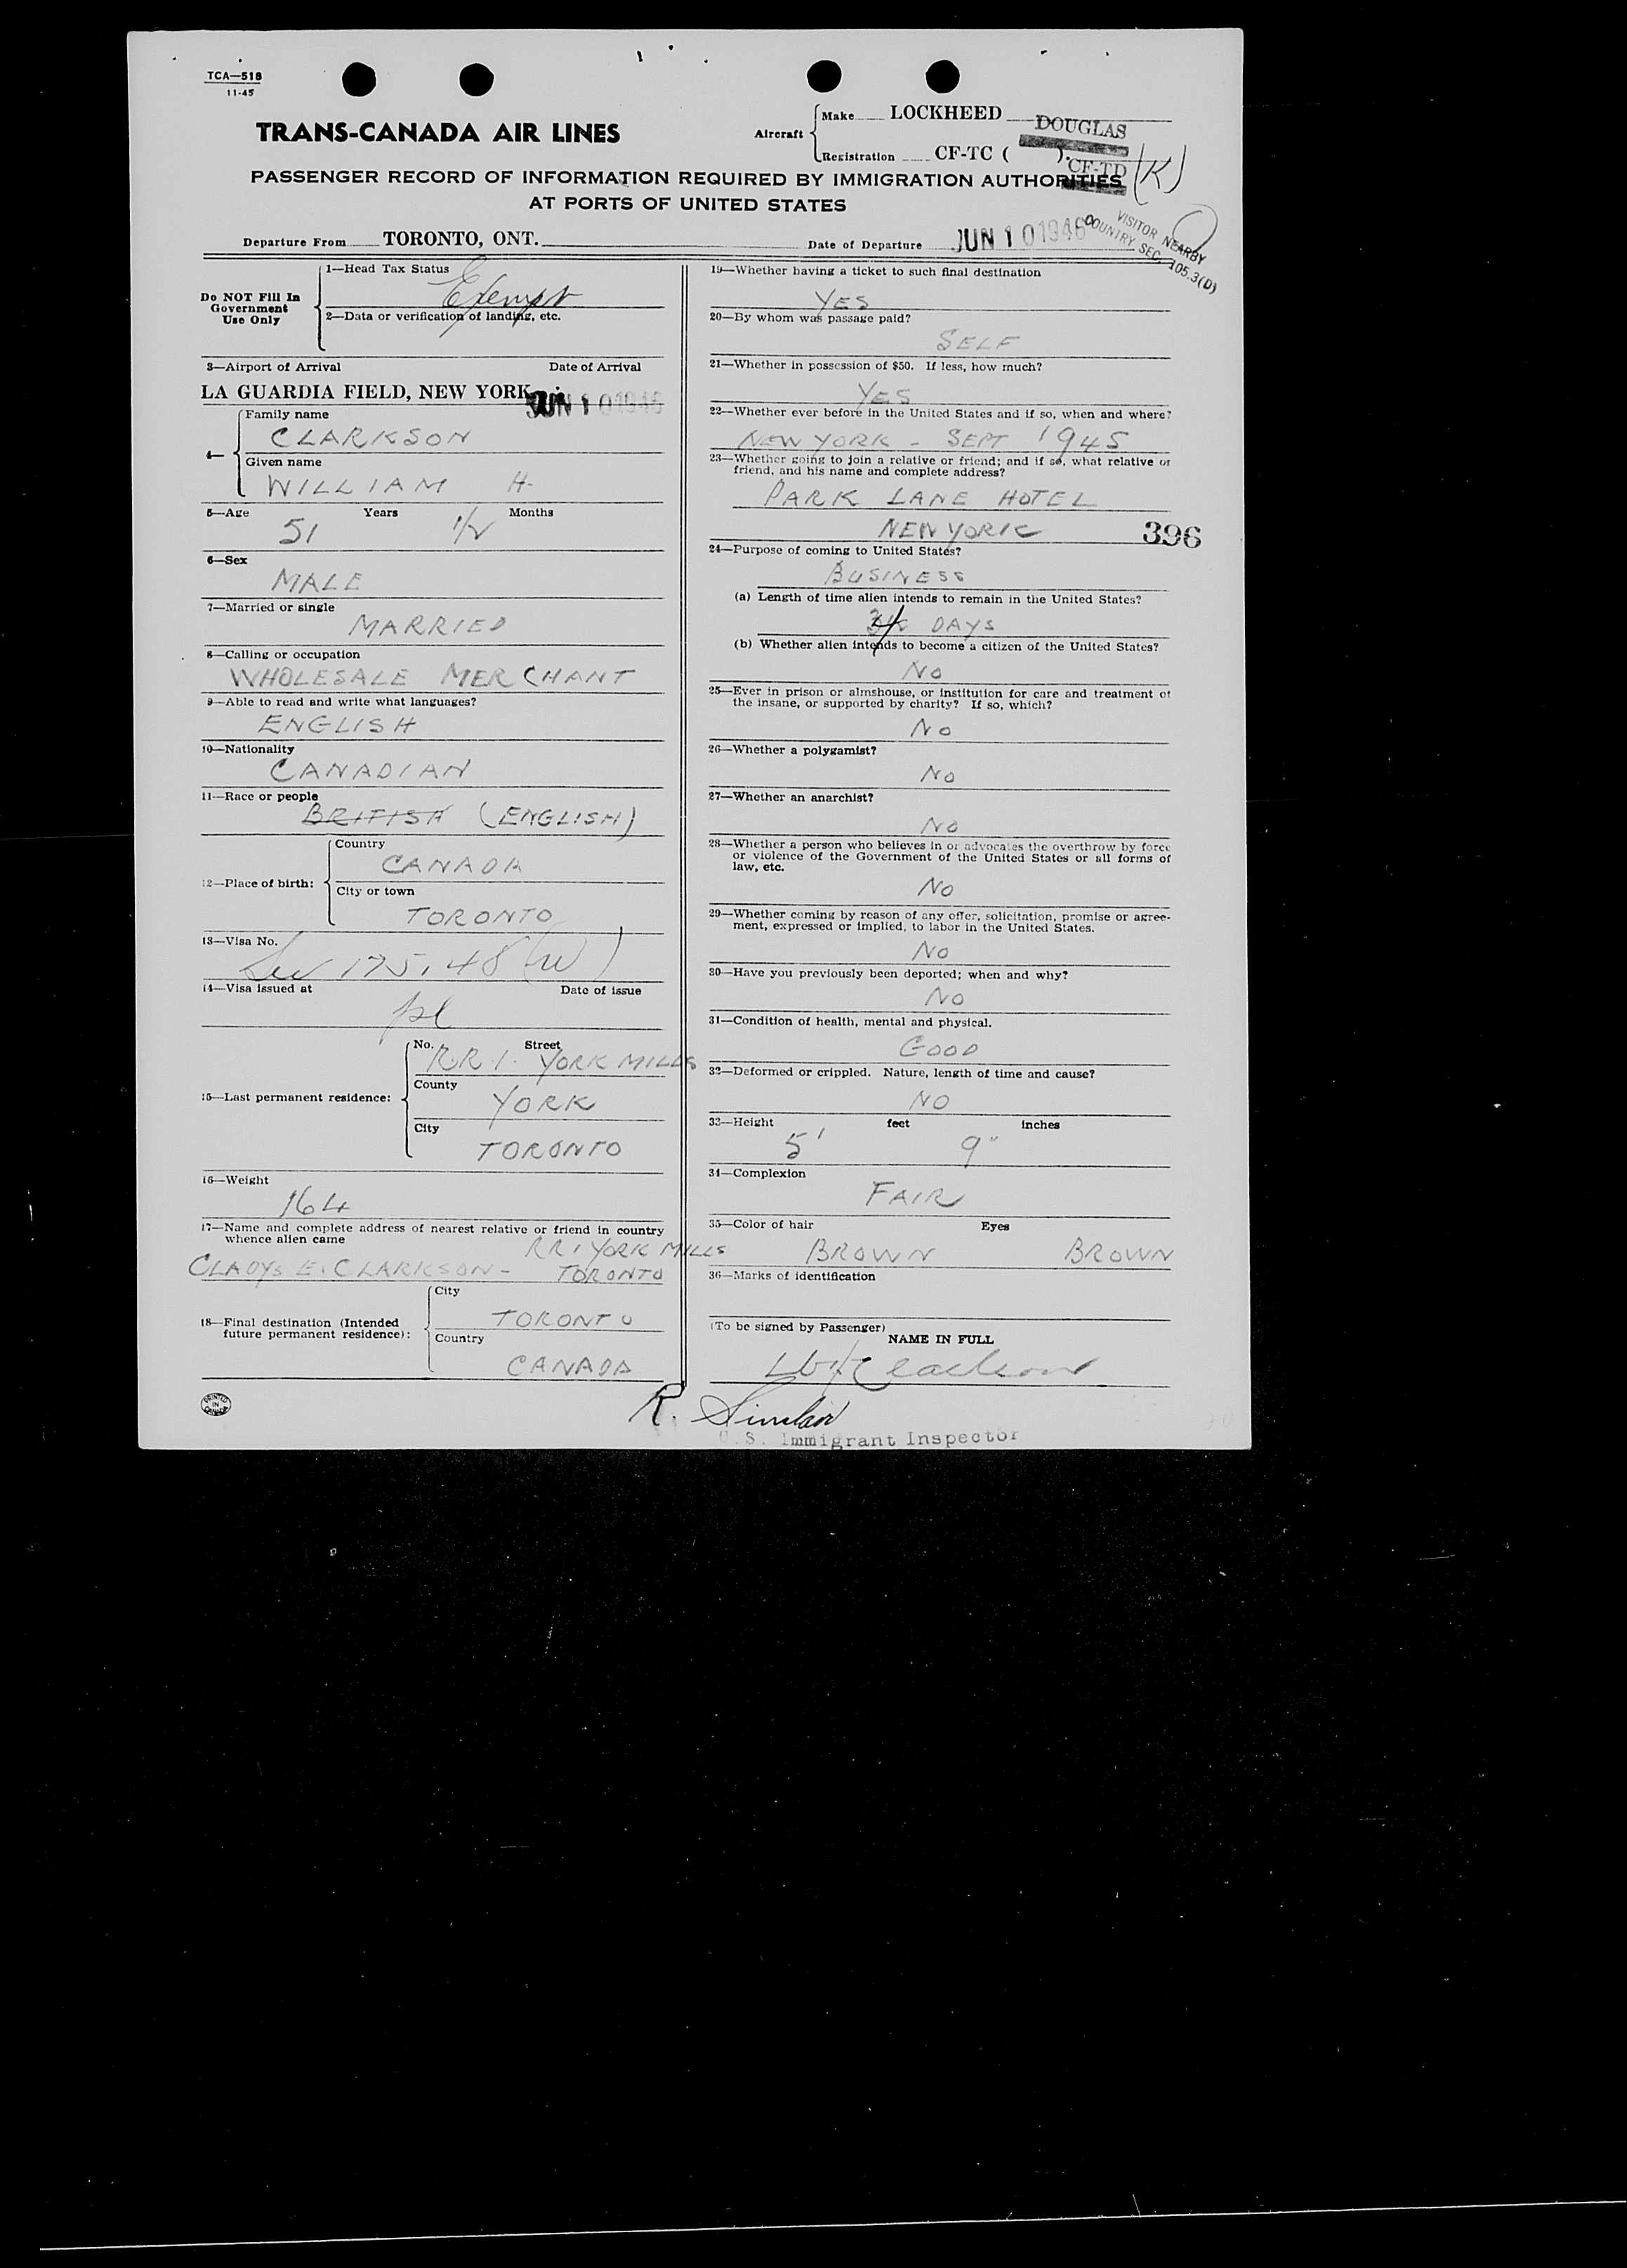 TCA—518
11-45
TRANS-CANADA AIR LINES
Aircraft
Make LOCKHEED DOUGLAS
Registration CF-TC ( ). CF-TD (K)
PASSENGER RECORD OF INFORMATION REQUIRED BY IMMIGRATION AUTHORITIES
AT PORTS OF UNITED STATES
VISITOR NEARBY
COUNTRY SEC. 105.3(D)
Departure From TORONTO, ONT. Date of Departure JUN 10 1946
Do NOT Fill In
Government
Use Only
1—Head Tax Status
Exempt
2—Data or verification of landing, etc.
3—Airport of Arrival Date of Arrival
LA GUARDIA FIELD, NEW YORK JUN 10 1946
4—
Family name
CLARKSON
Given name
WILLIAM H.
5—Age Years Months
51 1/2
6—Sex
MALE
7—Married or single
MARRIED
8—Calling or occupation
WHOLESALE MERCHANT
9—Able to read and write what languages?
ENGLISH
10—Nationality
CANADIAN
11—Race or people
BRITISH (ENGLISH)
12—Place of birth:
Country
CANADA
City or town
TORONTO
13—Visa No.
175.48 (W)
14—Visa issued at Date of issue
15—Last permanent residence:
No. Street
R.R.1. YORK MILLS
County
YORK
City
TORONTO
16—Weight
164
17—Name and complete address of nearest relative or friend in country
whence alien came
RR1 YORK MILLS
GLADYS E. CLARKSON - TORONTO
18—Final destination (Intended
future permanent residence):
City
TORONTO
Country
CANADA
PRINTED
IN
CANADA
19—Whether having a ticket to such final destination
YES
20—By whom was passage paid?
SELF
21—Whether in possession of $50. If less, how much?
YES
22—Whether ever before in the United States and if so, when and where?
NEW YORK - SEPT 1945
23—Whether going to join a relative or friend; and if so, what relative or
friend, and his name and complete address?
PARK LANE HOTEL
NEW YORK
396
24—Purpose of coming to United States?
BUSINESS
(a) Length of time alien intends to remain in the United States?
DAYS
(b) Whether alien intends to become a citizen of the United States?
NO
25—Ever in prison or almshouse, or institution for care and treatment of
the insane, or supported by charity? If so, which?
NO
26—Whether a polygamist?
NO
27—Whether an anarchist?
NO
28—Whether a person who believes in or advocates the overthrow by force
or violence of the Government of the United States or all forms of
law, etc.
NO
29—Whether coming by reason of any offer, solicitation, promise or agree-
ment, expressed or implied, to labor in the United States.
NO
30—Have you previously been deported; when and why?
NO
31—Condition of health, mental and physical.
GOOD
32—Deformed or crippled. Nature, length of time and cause?
NO
33—Height feet inches
5' 9"
34—Complexion
FAIR
35—Color of hair Eyes
BROWN BROWN
36—Marks of identification
(To be signed by Passenger)
NAME IN FULL
W H Clarkson
R. Sinclair
U.S. Immigrant Inspector